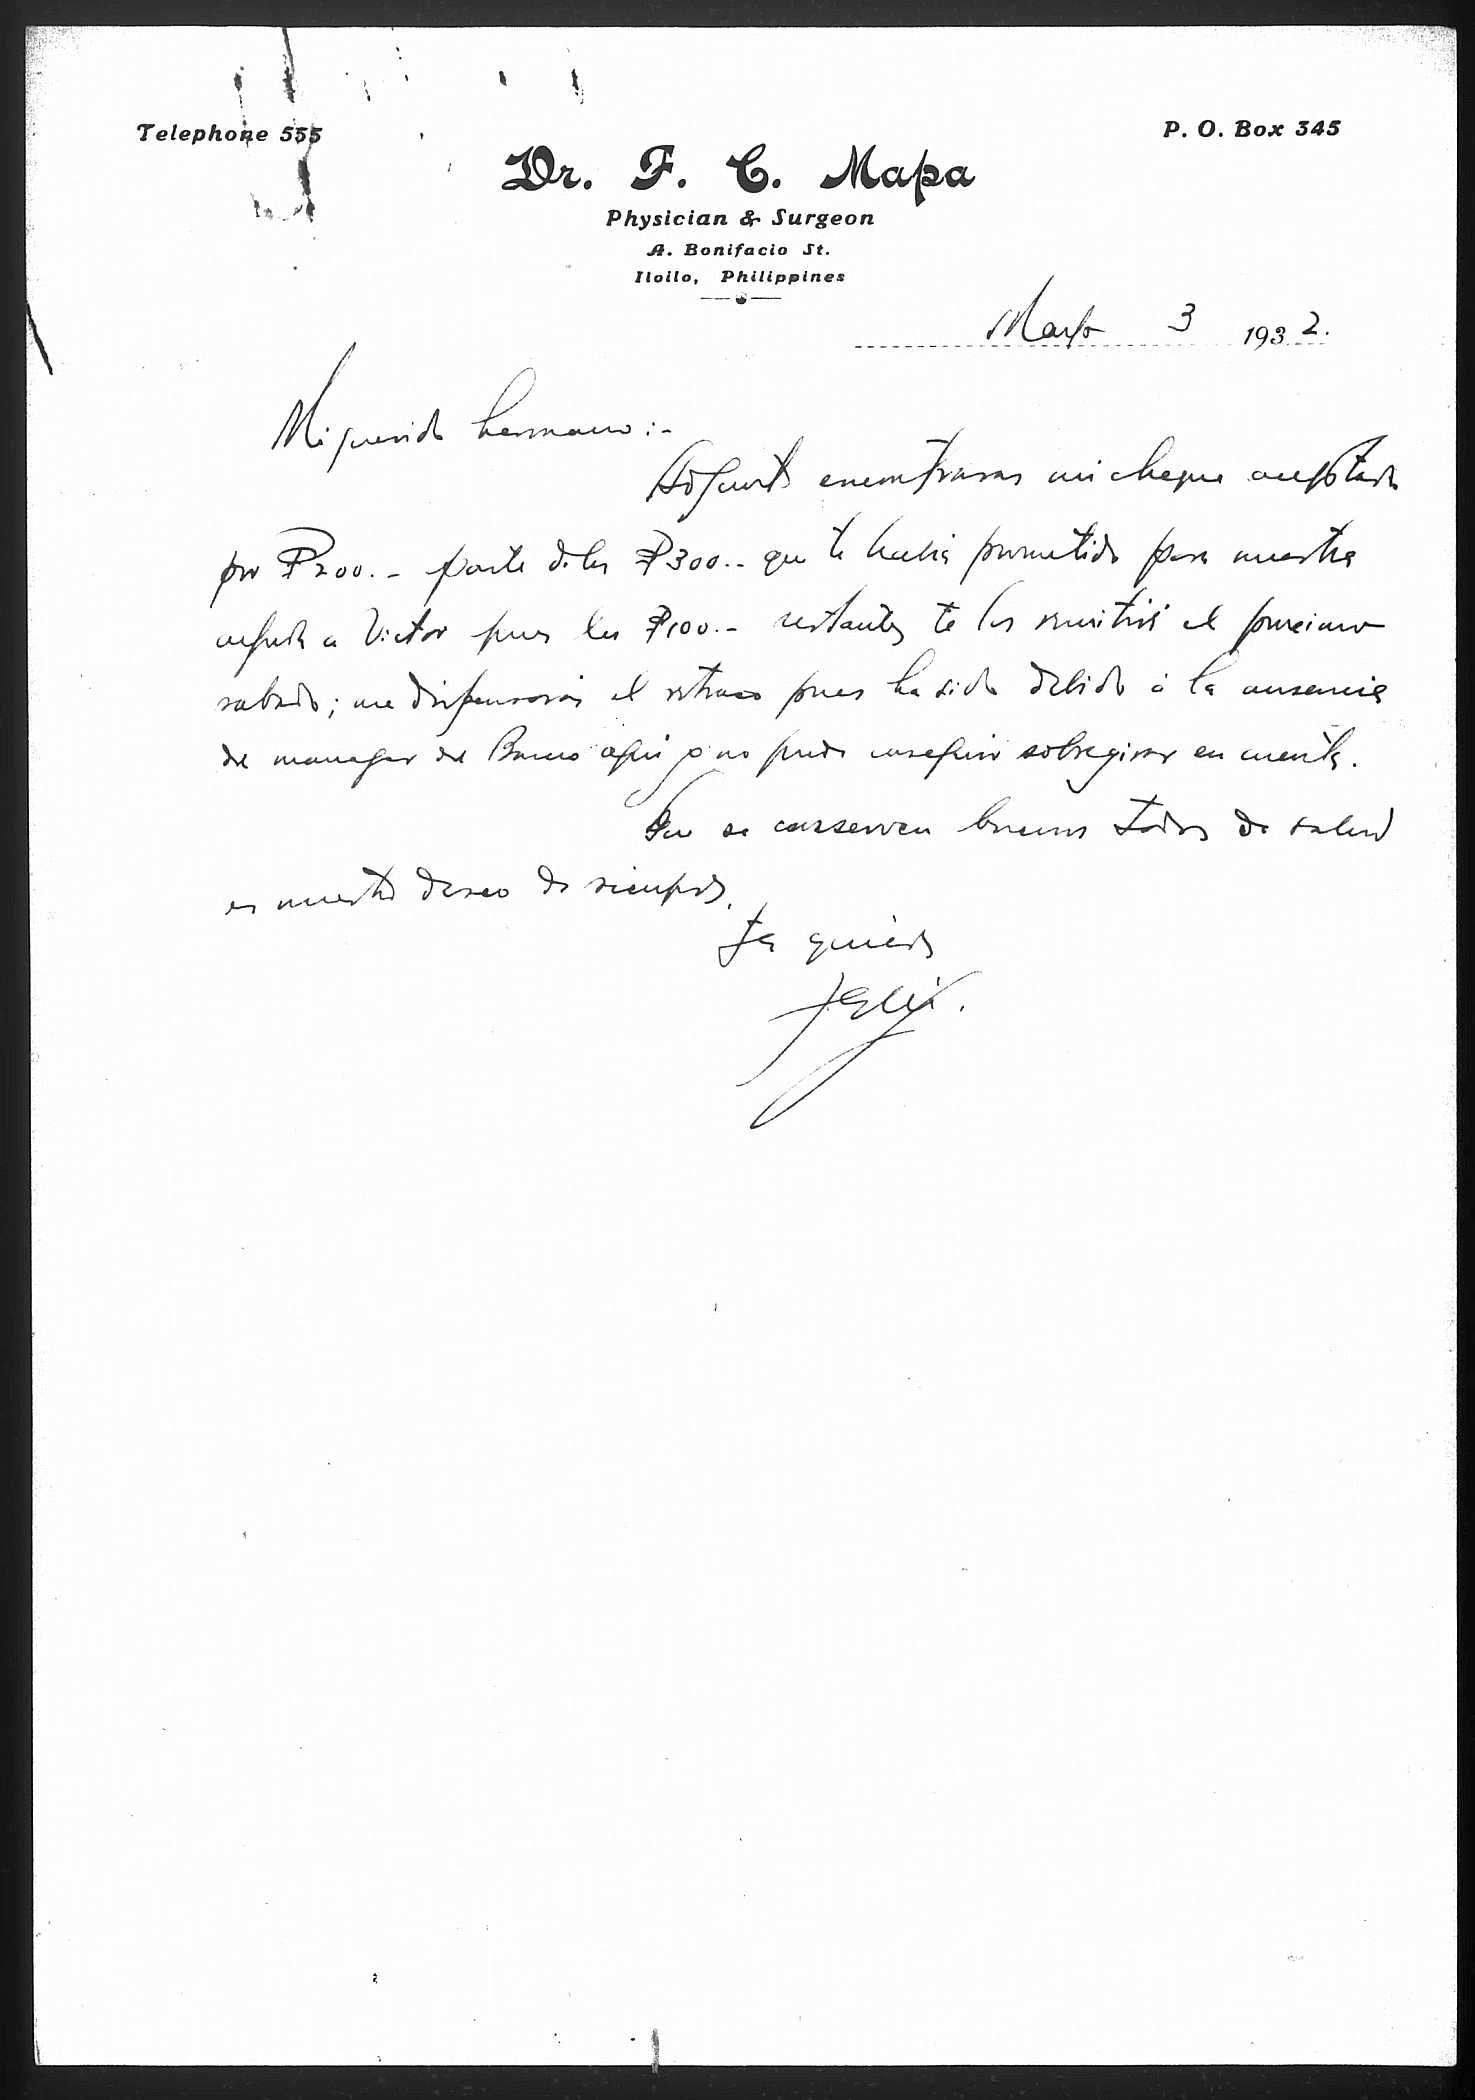 Telephone 555
P. O. Box 345
Dr. F. C. Mapa
Physician & Surgeon
A. Bonifacio St.
Iloilo, Philippines
Marzo 3 1932.
Mi querido hermano:-
Adjunto encontraras mi cheque aceptado
por ₱200.- parte de los ₱300.- que te habia prometido para nuestra
ayuda a Victor pues los ₱100.- restantes te los remitiré el proximo
sabado; me dispensarás el retraso pues ha sido debido á la ausencia
del manager del Banco aqui y no pude conseguir sobregirar en cuenta.
Que se conserven buenos todos de salud
es nuestro deseo de siempre.
Te quiere
Felix.